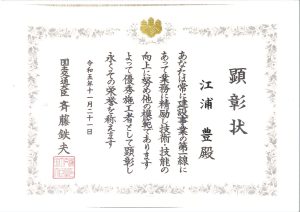 顕彰状
江浦 豊 殿
あなたは常に建設事業の第一線に
あって業務に精励し技術・技能の
向上に努め他の模範であります
よって優秀施工者として顕彰し
永くその栄誉を称えます
令和五年十一月二十一日
国土交通大臣 斉藤鉄夫